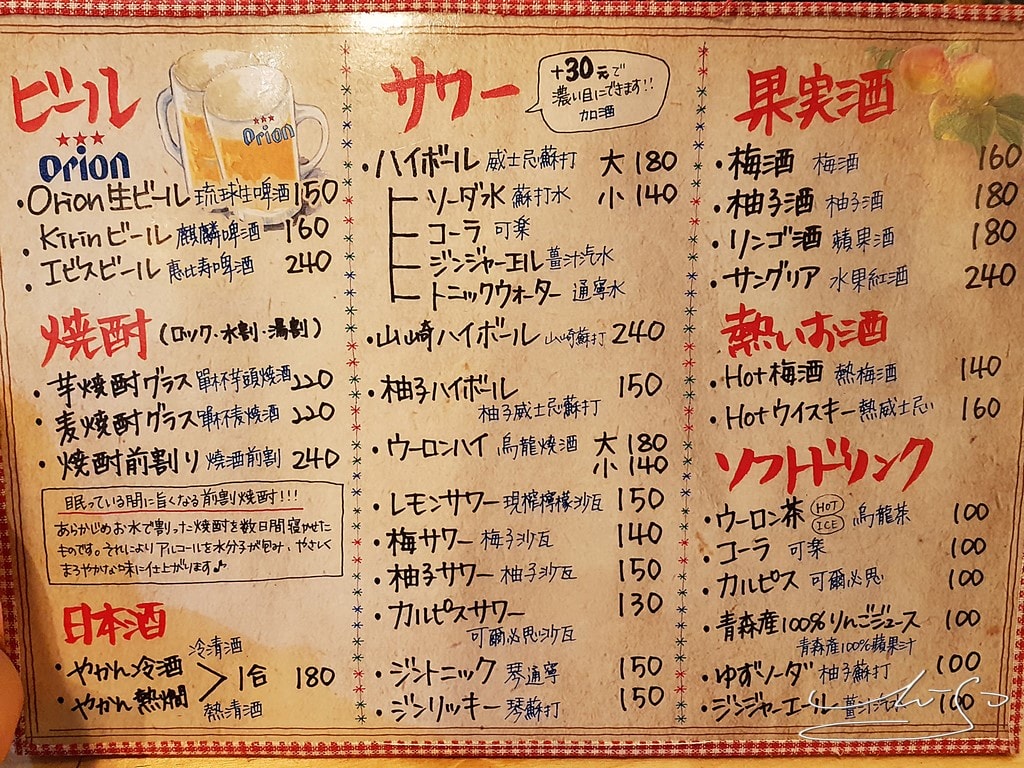 ビール
orion
Orion
Orion生ビール 琉球生啤酒 150
Kirinビール 麒麟啤酒 160
エビスビール 恵比寿啤酒 240
焼酎 (ロック・水割・湯割)
芋焼酎グラス 單杯芋頭焼酒 220
麦焼酎グラス 單杯麦焼酒 220
焼酎前割り 燒酒前割 240
眠っている間に旨くなる前割焼酎!!!
あらかじめお水で割った焼酎を数日間寝かせた
ものです。それによりアルコールを水分子が包み、やさしく
まろやかな味に仕上がります♪
日本酒
やかん冷酒 冷清酒
やかん熱燗 熱清酒
> 1合 180
サワー
+30元で
濃い目にできます!!
加酒
ハイボール 威士忌蘇打 大 180
小 140
ソーダ水 蘇打水
コーラ 可楽
ジンジャーエル 薑汁汽水
トニックウォーター 通寧水
山崎ハイボール 山崎蘇打 240
柚子ハイボール 150
柚子威士忌蘇打
ウーロンハイ 烏龍焼酒 大 180
小 140
レモンサワー 現榨檸檬沙瓦 150
梅サワー 梅子沙瓦 140
柚子サワー 柚子沙瓦 150
カルピスサワー 130
可爾必思沙瓦
ジントニック 琴通寧 150
ジンリッキー 琴蘇打 150
果実酒
梅酒 梅酒 160
柚子酒 柚子酒 180
リンゴ酒 蘋果酒 180
サングリア 水果紅酒 240
熱いお酒
Hot梅酒 熱梅酒 140
Hotウイスキー 熱威士忌 160
ソフトドリンク
ウーロン茶 HOT ICE 烏龍茶 100
コーラ 可楽 100
カルピス 可爾必思 100
青森産100%りんごジュース 100
青森産100%蘋果汁
ゆずソーダ 柚子蘇打 100
ジンジャーエール 薑汁汽水 100